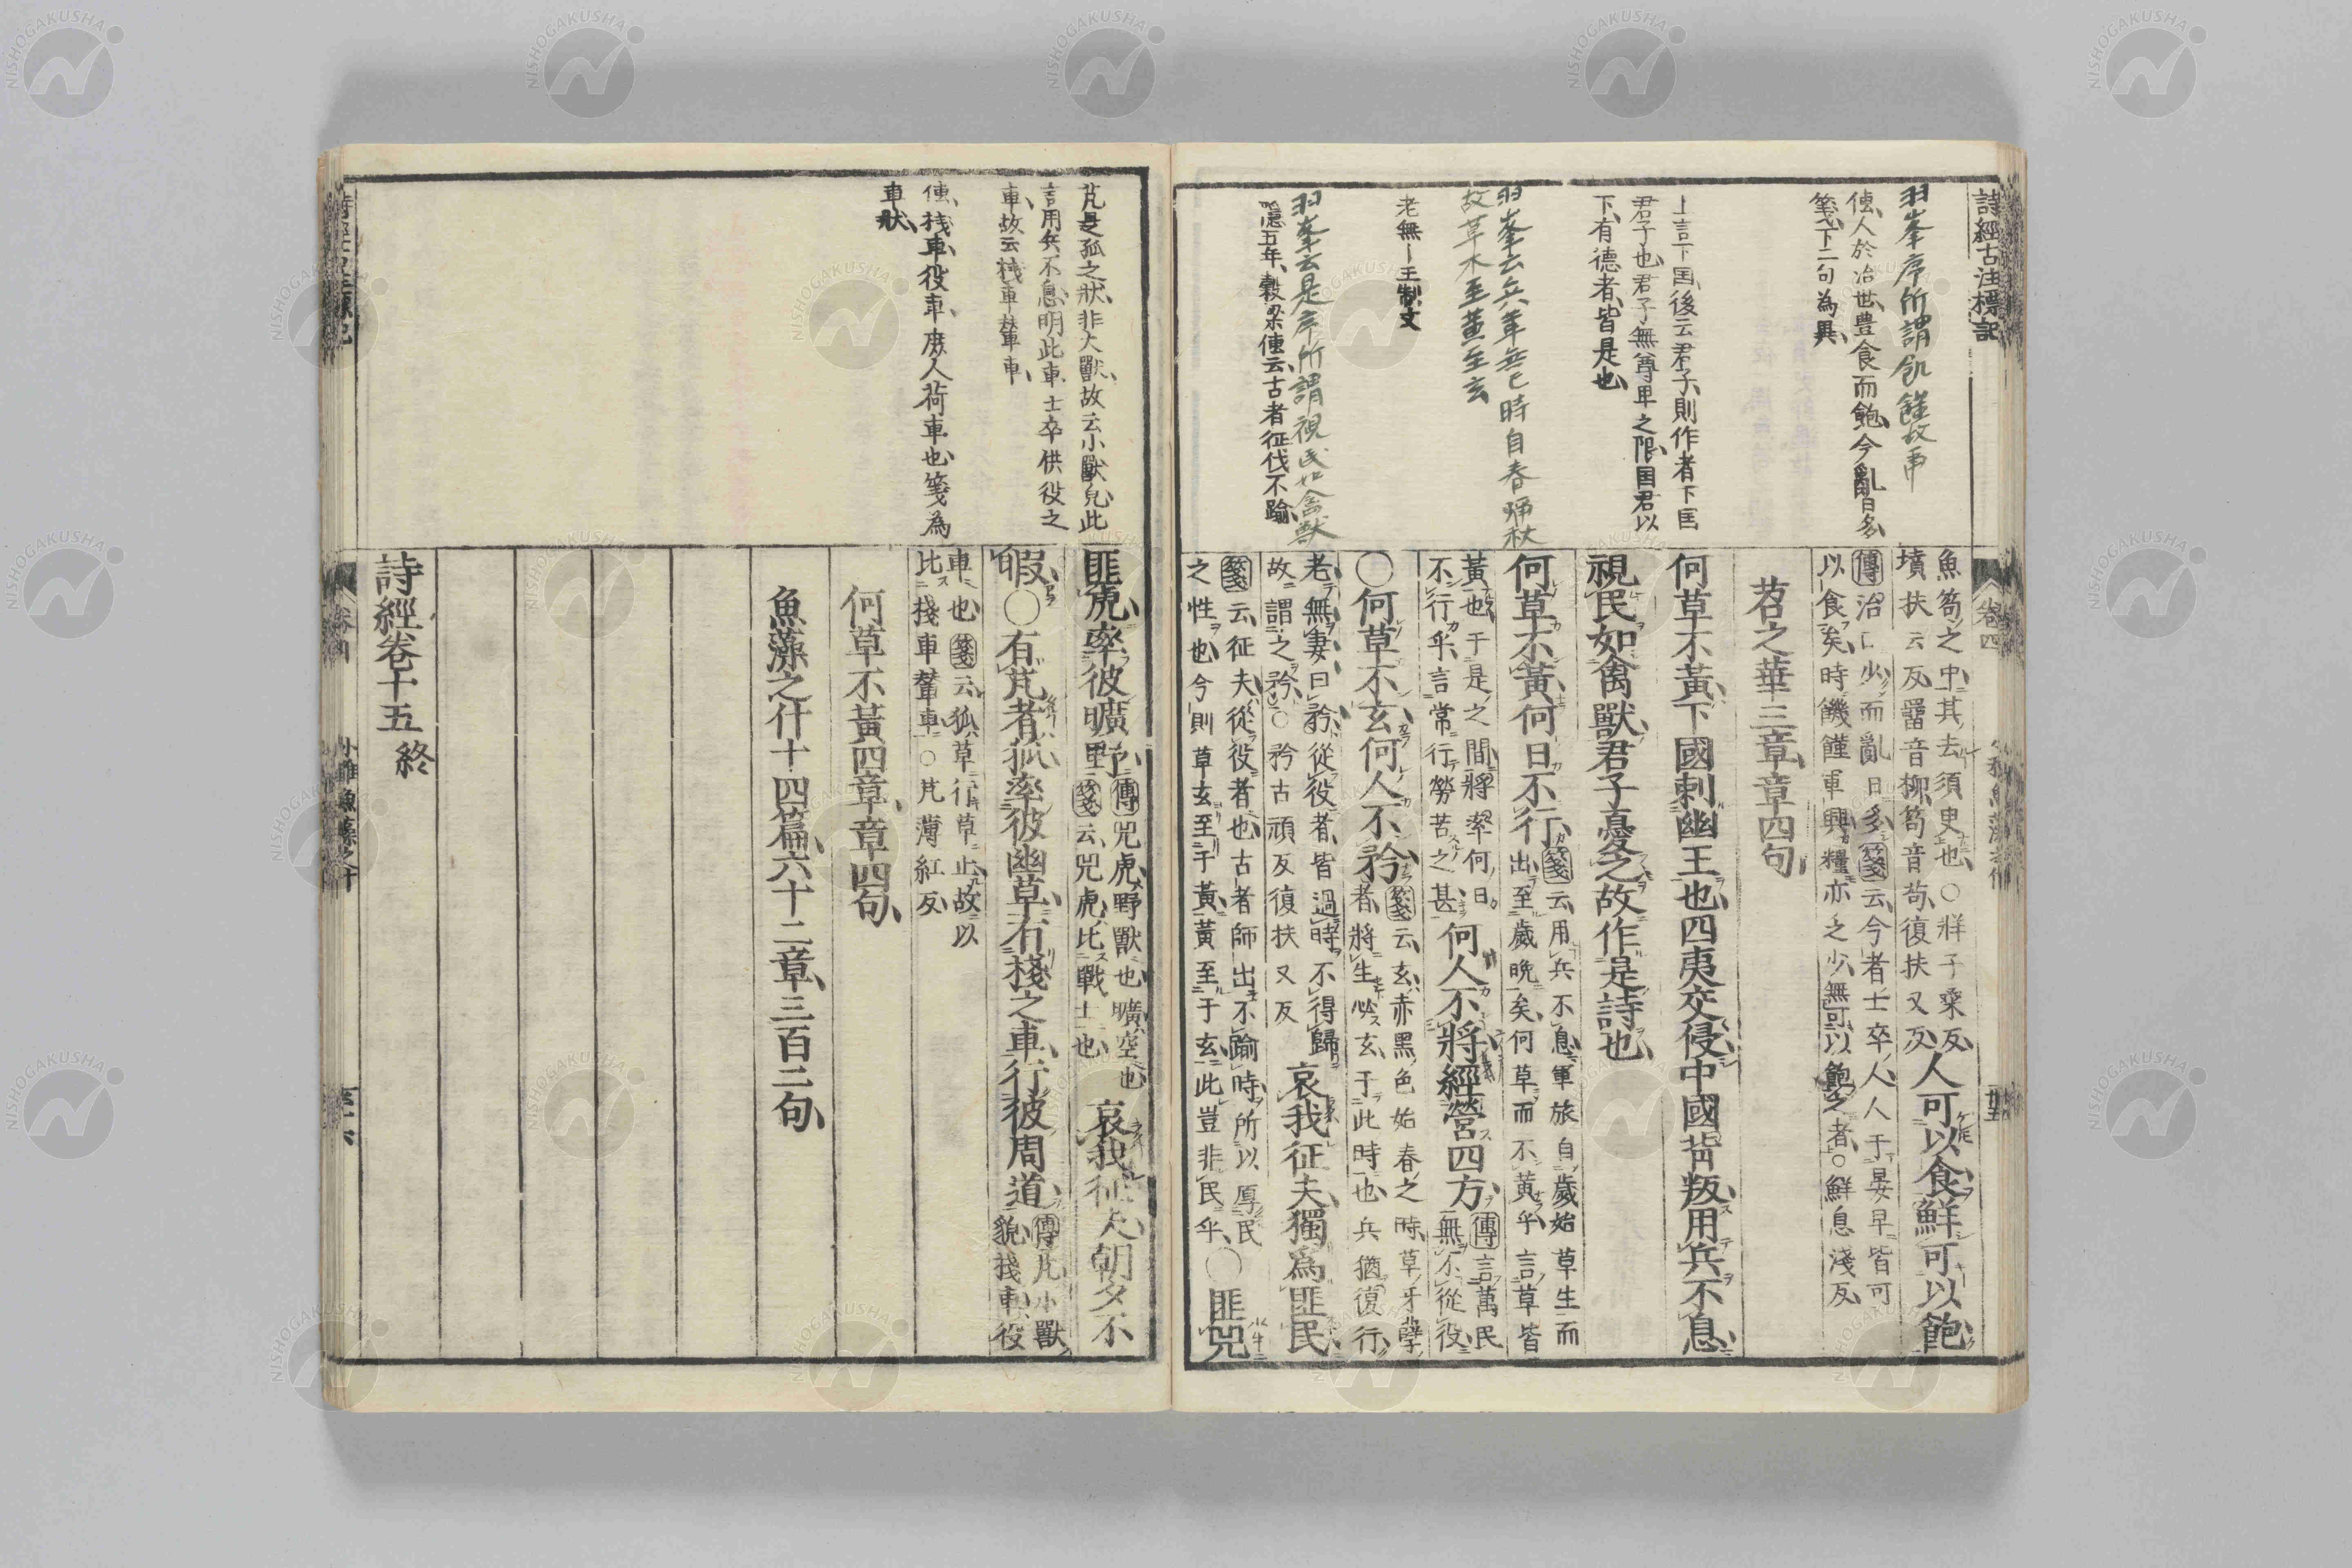 詩經古注標記
羽峯序所謂飢饉故再
傳人於治世豊食而飽今亂日多
箋下二句為異
上言下国後云君子則作者下国
君子也君子無尊卑之限国君以
下有德者皆是也
羽峯云兵革無已時自春涉秋
故草木至黃至玄
老無一王制文
羽峯云是序所謂視民如禽獸
隱五年穀梁傳云古者征伐不踰
卷四
魚笱之中其去須臾也○牂子桑反
墳扶云反罶音柳笱音苟復扶又反
人可以食鮮可以飽
傳治日少而亂日多箋云今者士卒人人于晏早皆可
以食矣時饑饉軍興糧亦乏少無可以飽之者○鮮息淺反
苕之華三章章四句
何草不黃下國刺幽王也四夷交侵中國背叛用兵不息
視民如禽獸君子憂之故作是詩也
何草不黃何日不行
箋云用兵不息軍旅自歲始草生而
出至歲晚矣何草而不黃乎言草皆
黃也于是之間將率何日
不行乎言常行勞苦之甚
何人不將經營四方
傳言萬民
無不從役
○何草不玄何人不矜
箋云玄赤黑色始春之時草牙孽
者將生必玄于此時也兵猶復行
老無妻曰矜從役者皆過時不得歸
故謂之矜○矜古頑反復扶又反
哀我征夫獨爲匪民
箋云征夫從役者也古者師出不踰時所以厚民
之性也今則草玄至于黃黃至于玄此豈非民乎
○匪兕
芃是孤之狀非大獸故云小獸皃此
言用兵不息明此車士卒供役之
車故云棧車輦車
傳棧車役車庶人荷車也箋為
車狀
匪虎率彼曠野
傳兕虎野獸也曠空也
箋云兕虎比戰士也
哀我征夫朝夕不
暇○有芃者孤率彼幽草有棧之車行彼周道
傳芃小獸
貌棧車役
車也箋云狐草行草止故以
比棧車輦車○芃薄紅反
何草不黃四章章四句
魚藻之什十四篇六十二章三百二句
詩經卷十五 終
小雅魚藻之什